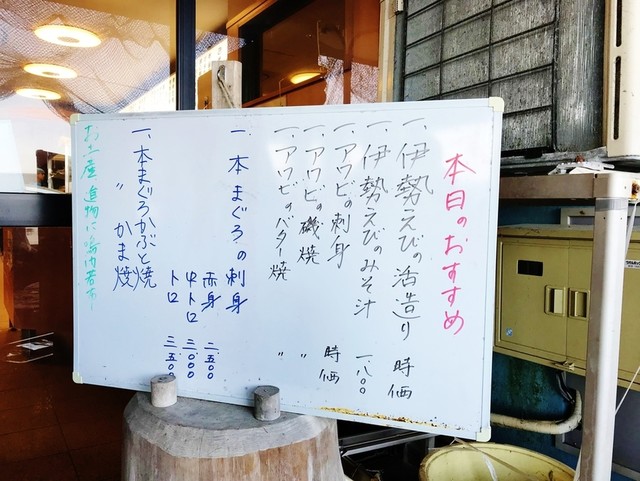 本日のおすすめ
一、伊勢えびの活造り 時価
一、伊勢えびのみそ汁 一、八〇〇
一、アワビの刺身 時価
一、アワビの磯焼 〃
一、アワビのバター焼 〃
一、本まぐろの刺身
赤身 二五〇〇
中トロ 三〇〇〇
トロ 三五〇〇
一、本まぐろかぶと焼
〃 かま焼
お土産 進物に